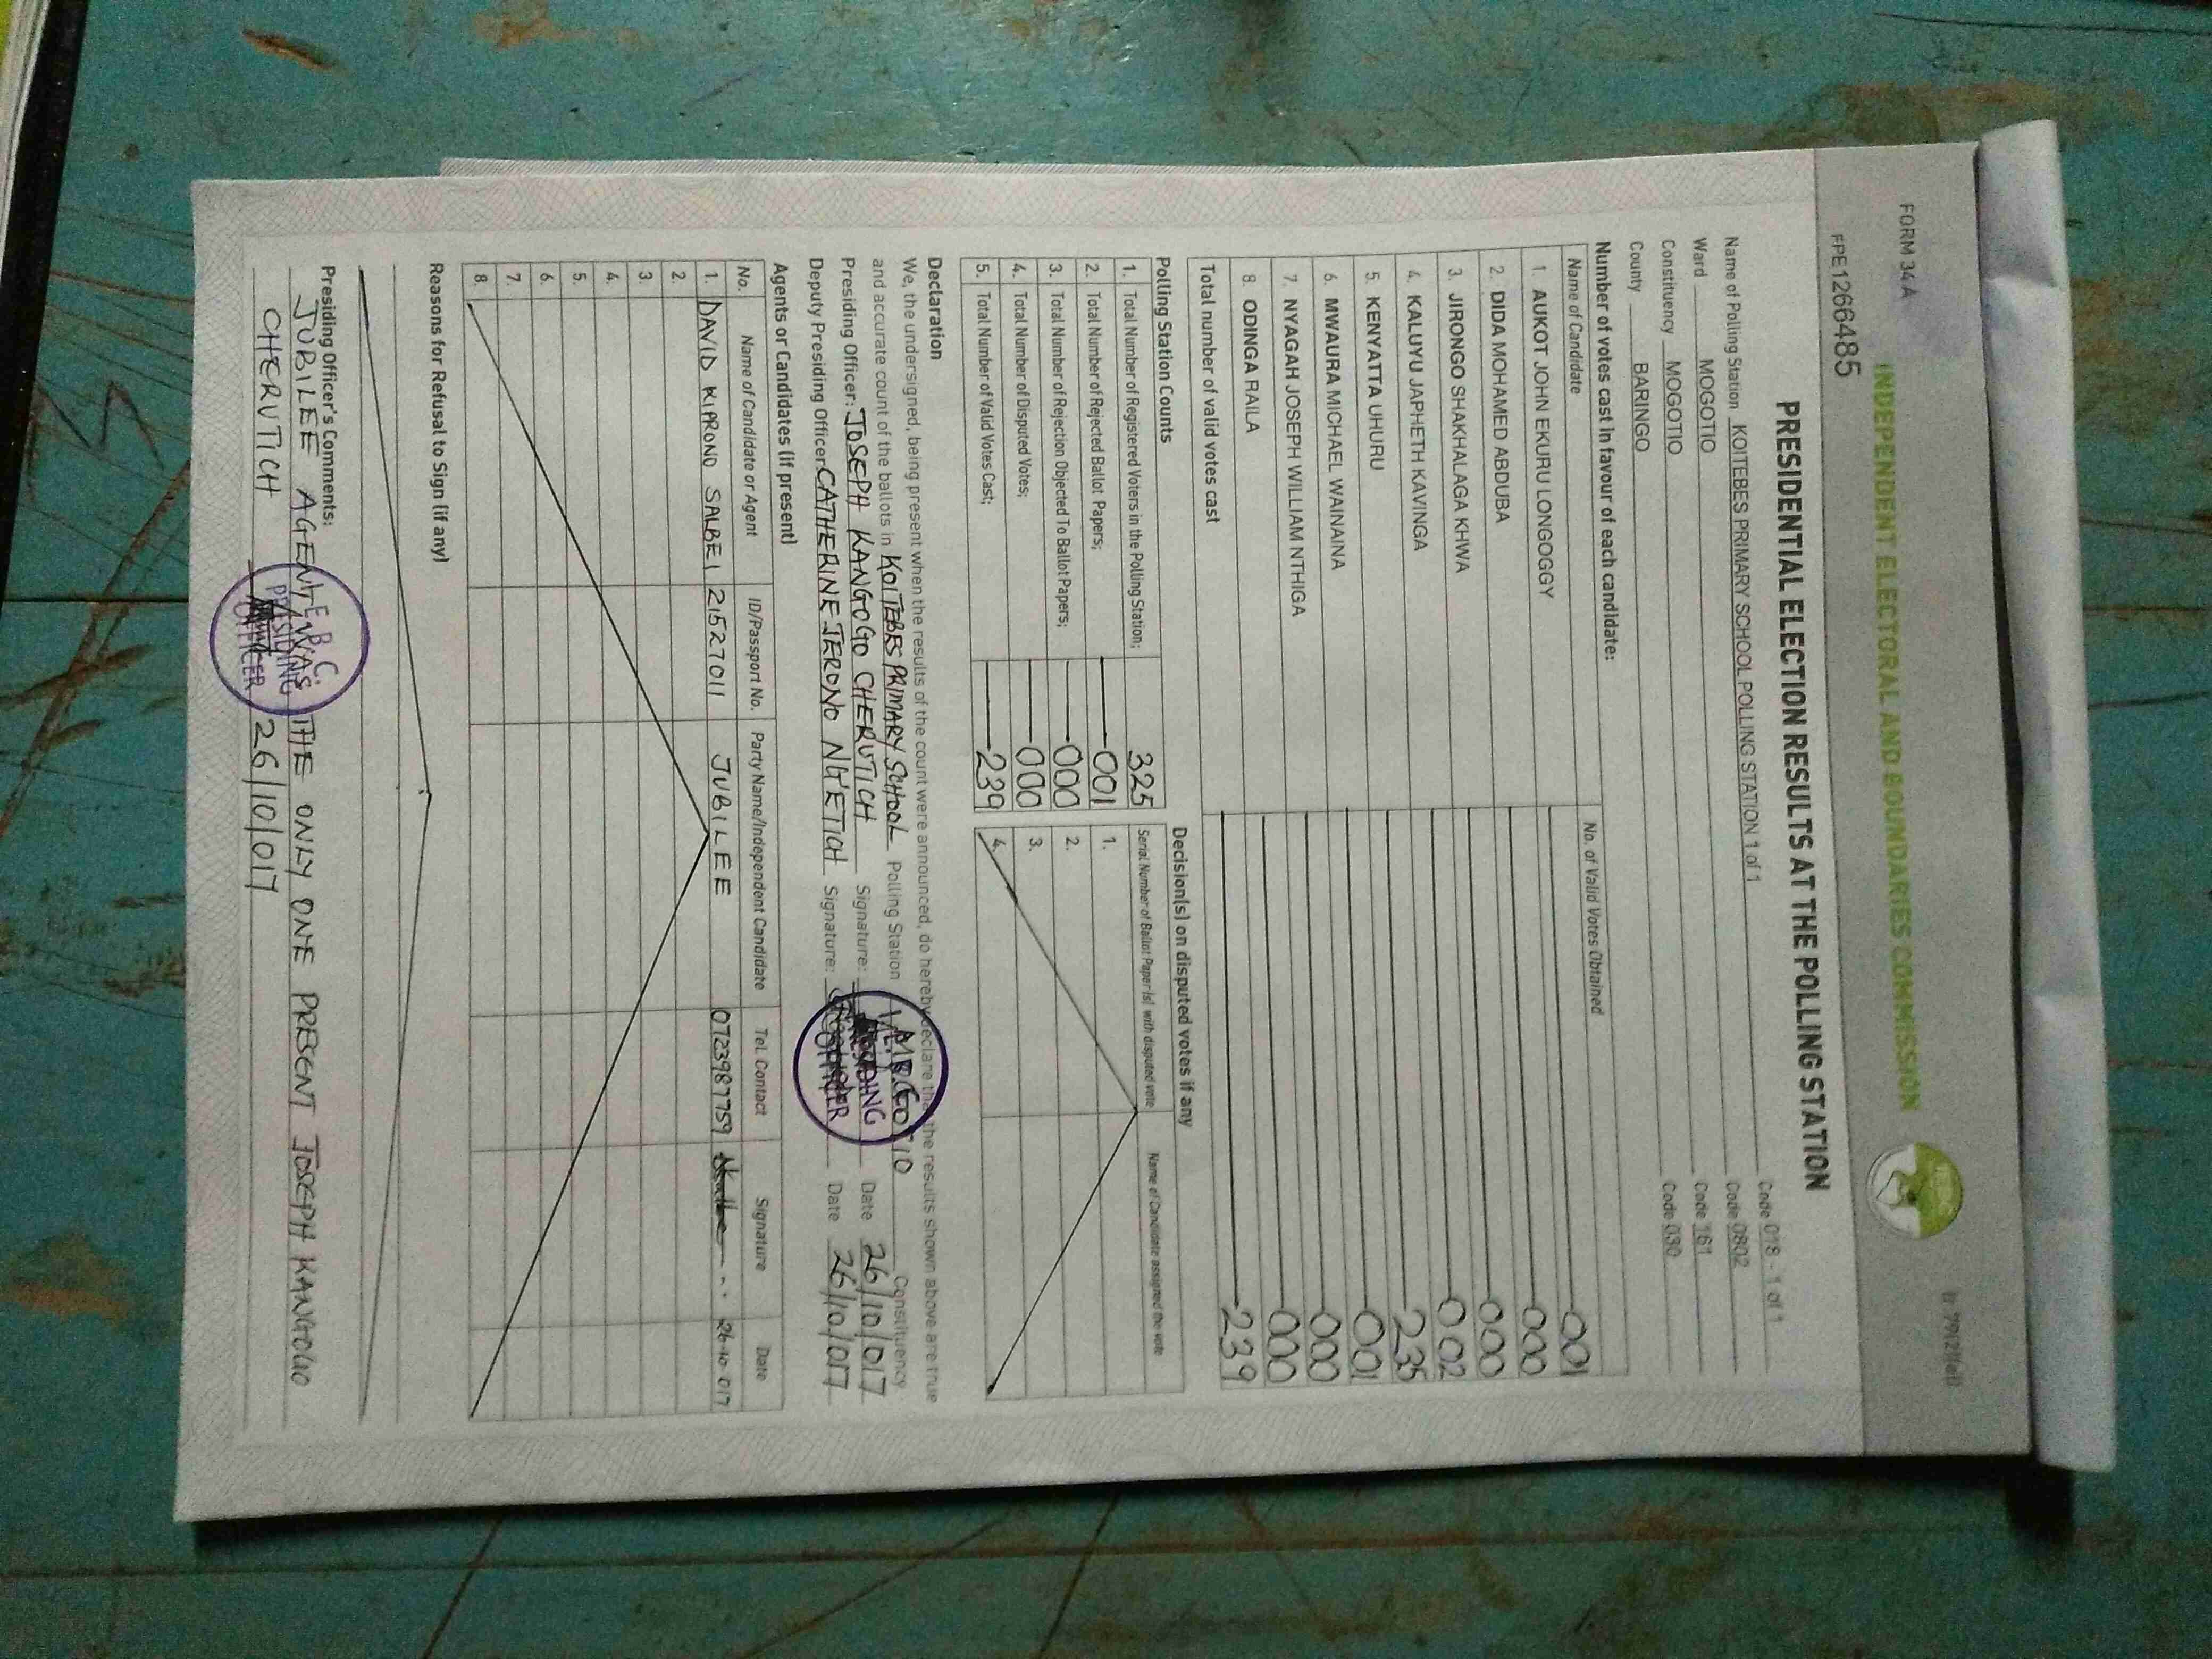 FORM 34A
INDEPENDENT ELECTORAL AND BOUNDARIES COMMISSION
FPE1266485
IEBC
PRESIDENTIAL ELECTION RESULTS AT THE POLLING STATION
Name of Polling Station KOITEBES PRIMARY SCHOOL POLLING STATION 1 of 1 Code 018 - 1 of 1
Ward MOGOTIO Code 0802
Constituency MOGOTIO Code 161
County BARINGO Code 030
Number of votes cast in favour of each candidate:
Name of Candidate No. of Valid Votes Obtained
1. AUKOT JOHN EKURU LONGOGGY 001
2. DIDA MOHAMED ABDUBA 000
3. JIRONGO SHAKHALAGA KHWA 000
4. KALUYU JAPHETH KAVINGA 002
5. KENYATTA UHURU 235
6. MWAURA MICHAEL WAINAINA 001
7. NYAGAH JOSEPH WILLIAM NTHIGA 000
8. ODINGA RAILA 000
Total number of valid votes cast 239
Polling Station Counts
1. Total Number of Registered Voters in the Polling Station; 325
2. Total Number of Rejected Ballot Papers; 001
3. Total Number of Rejection Objected To Ballot Papers; 000
4. Total Number of Disputed Votes; 000
5. Total Number of Valid Votes Cast; 239
Decision(s) on disputed votes if any
Serial Number of Ballot Paper(s) with disputed vote Name of Candidate assigned the vote
1.
2.
3.
4.
Declaration
We, the undersigned, being present when the results of the count were announced, do hereby declare that the results shown above are true
and accurate count of the ballots in KOITEBES PRIMARY SCHOOL Polling Station MOGOTIO Constituency
Presiding Officer: JOSEPH KANGOGO CHERUTICH Signature: Date 26/10/017
Deputy Presiding Officer CATHERINE JERONO NG'ETICH Signature: Date 26/10/017
PRESIDING
OFFICER
Agents or Candidates (if present)
No. Name of Candidate or Agent ID/Passport No. Party Name/Independent Candidate Tel. Contact Signature Date
1. DAVID KIPRONO SALBEI 21527011 JUBILEE 0723987759 26-10-017
2.
3.
4.
5.
6.
7.
8.
Reasons for Refusal to Sign (if any)
Presiding Officer's Comments:
JUBILEE AGENT WAS THE ONLY ONE PRESENT JOSEPH KANGOGO
CHERUTICH 26/10/017
PRESIDING
OFFICER